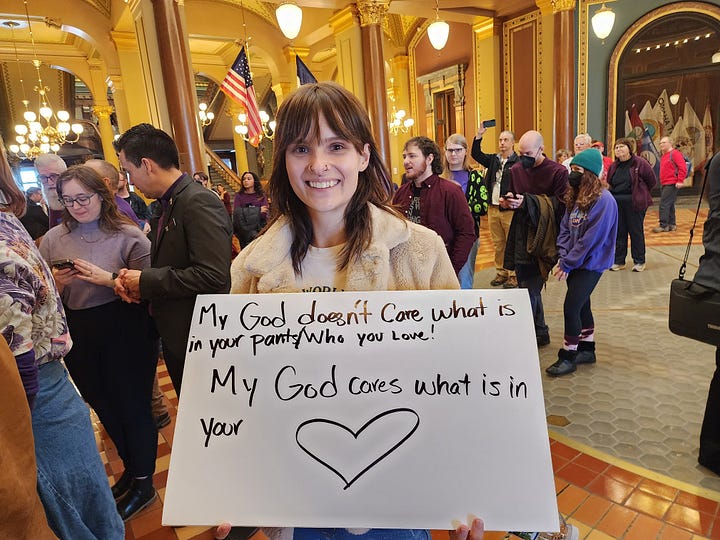 My God doesn't Care what is
in your pants/Who you Love!
My God cares what is in
your
WORLD